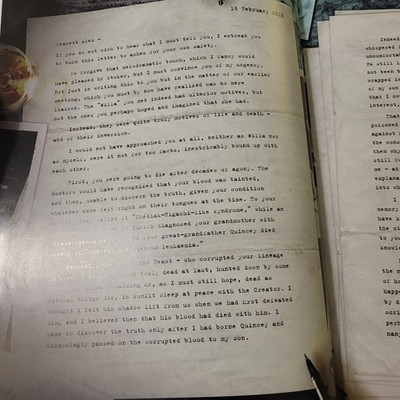 16 February 2018
Dearest Alex -
If you do not wish to hear what I must tell you, I entreat you
to burn this letter to ashes for your own safety.
Do forgive that melodramatic touch, which I fancy would
have pleased Mr Stoker, but I must convince you of my urgency.
Not just in writing this to you but in the matter of our earlier
meeting, which you must by now have realized was no mere
liaison. The "Willa" you met indeed had ulterior motives, but
not the ones you perhaps hoped and imagined that she had.
Instead, they were quite truly motives of life and death -
and of their inversion.
I would not have approached you at all, neither as Willa nor
as myself, were it not for two facts, inextricably bound up with
each other.
First, you were going to die after decades of agony. The
doctors would have recognized that your blood was tainted,
and then, unable to discern the truth, given your condition
whatever name felt right on their tongues at the time. To your
called it "Chédiak-Higashi-like syndrome," while an
diagnosed your grandmother with
your great-grandfather Quincey died
leukaemia."
the Beast - who corrupted your lineage
truly dead at last, hunted down by some
us, as I must still hope, dead as
natural things die, in sunlit sleep at peace with the Creator. I
thought I felt his shadow lift from us when we had first defeated
him, and I believed then that his blood had died with him. I
came to discover the truth only after I had borne Quincey and
unknowingly passed on the corrupted blood to my son.
Indeed
whispered
uncomfort
He still l
not been b
wrapped in
of my son
that I cou
interest,
That
poisoned
against
the cons
them who
still it
me - at
explana
into wh
I
memory
have a
the ol
to you
know
Even
the m
of ho
happ
by d
scri
perh
many